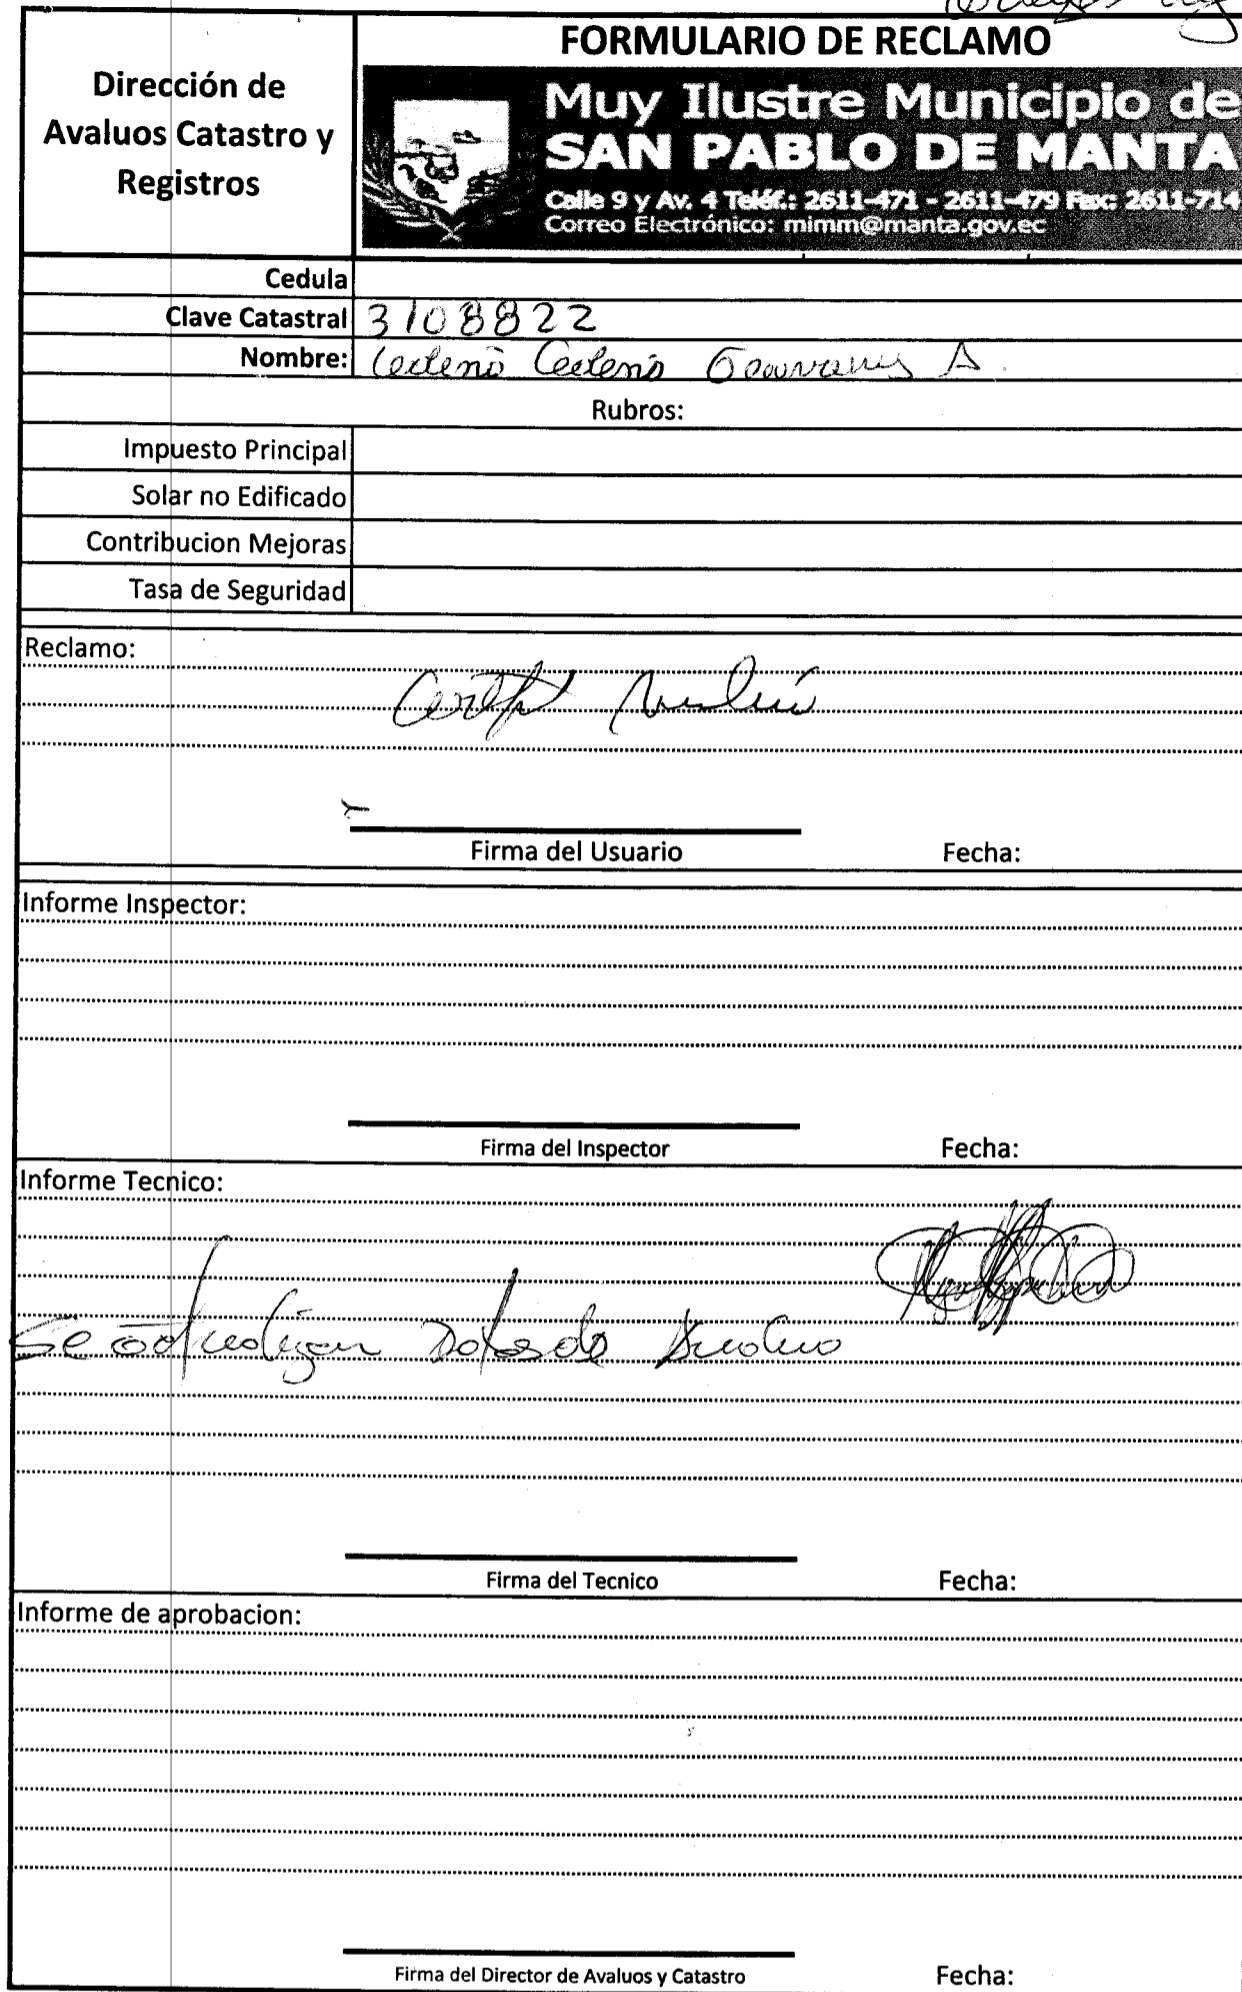 FORMULARIO DE RECLAMO
Dirección de
Avaluos Catastro y
Registros
Muy Ilustre Municipio de
SAN PABLO DE MANTA
Calle 9 y Av. 4 Teléf.: 2611-471 - 2611-479 Fax: 2611-714
Correo Electrónico: mimm@manta.gov.ec
Cedula
Clave Catastral 3108822
Nombre: Cedeño Cedeño A.
Rubros:
Impuesto Principal
Solar no Edificado
Contribucion Mejoras
Tasa de Seguridad
Reclamo:
Firma del Usuario Fecha:
Informe Inspector:
Firma del Inspector Fecha:
Informe Tecnico:
Se
Firma del Tecnico Fecha:
Informe de aprobacion:
Firma del Director de Avaluos y Catastro Fecha: